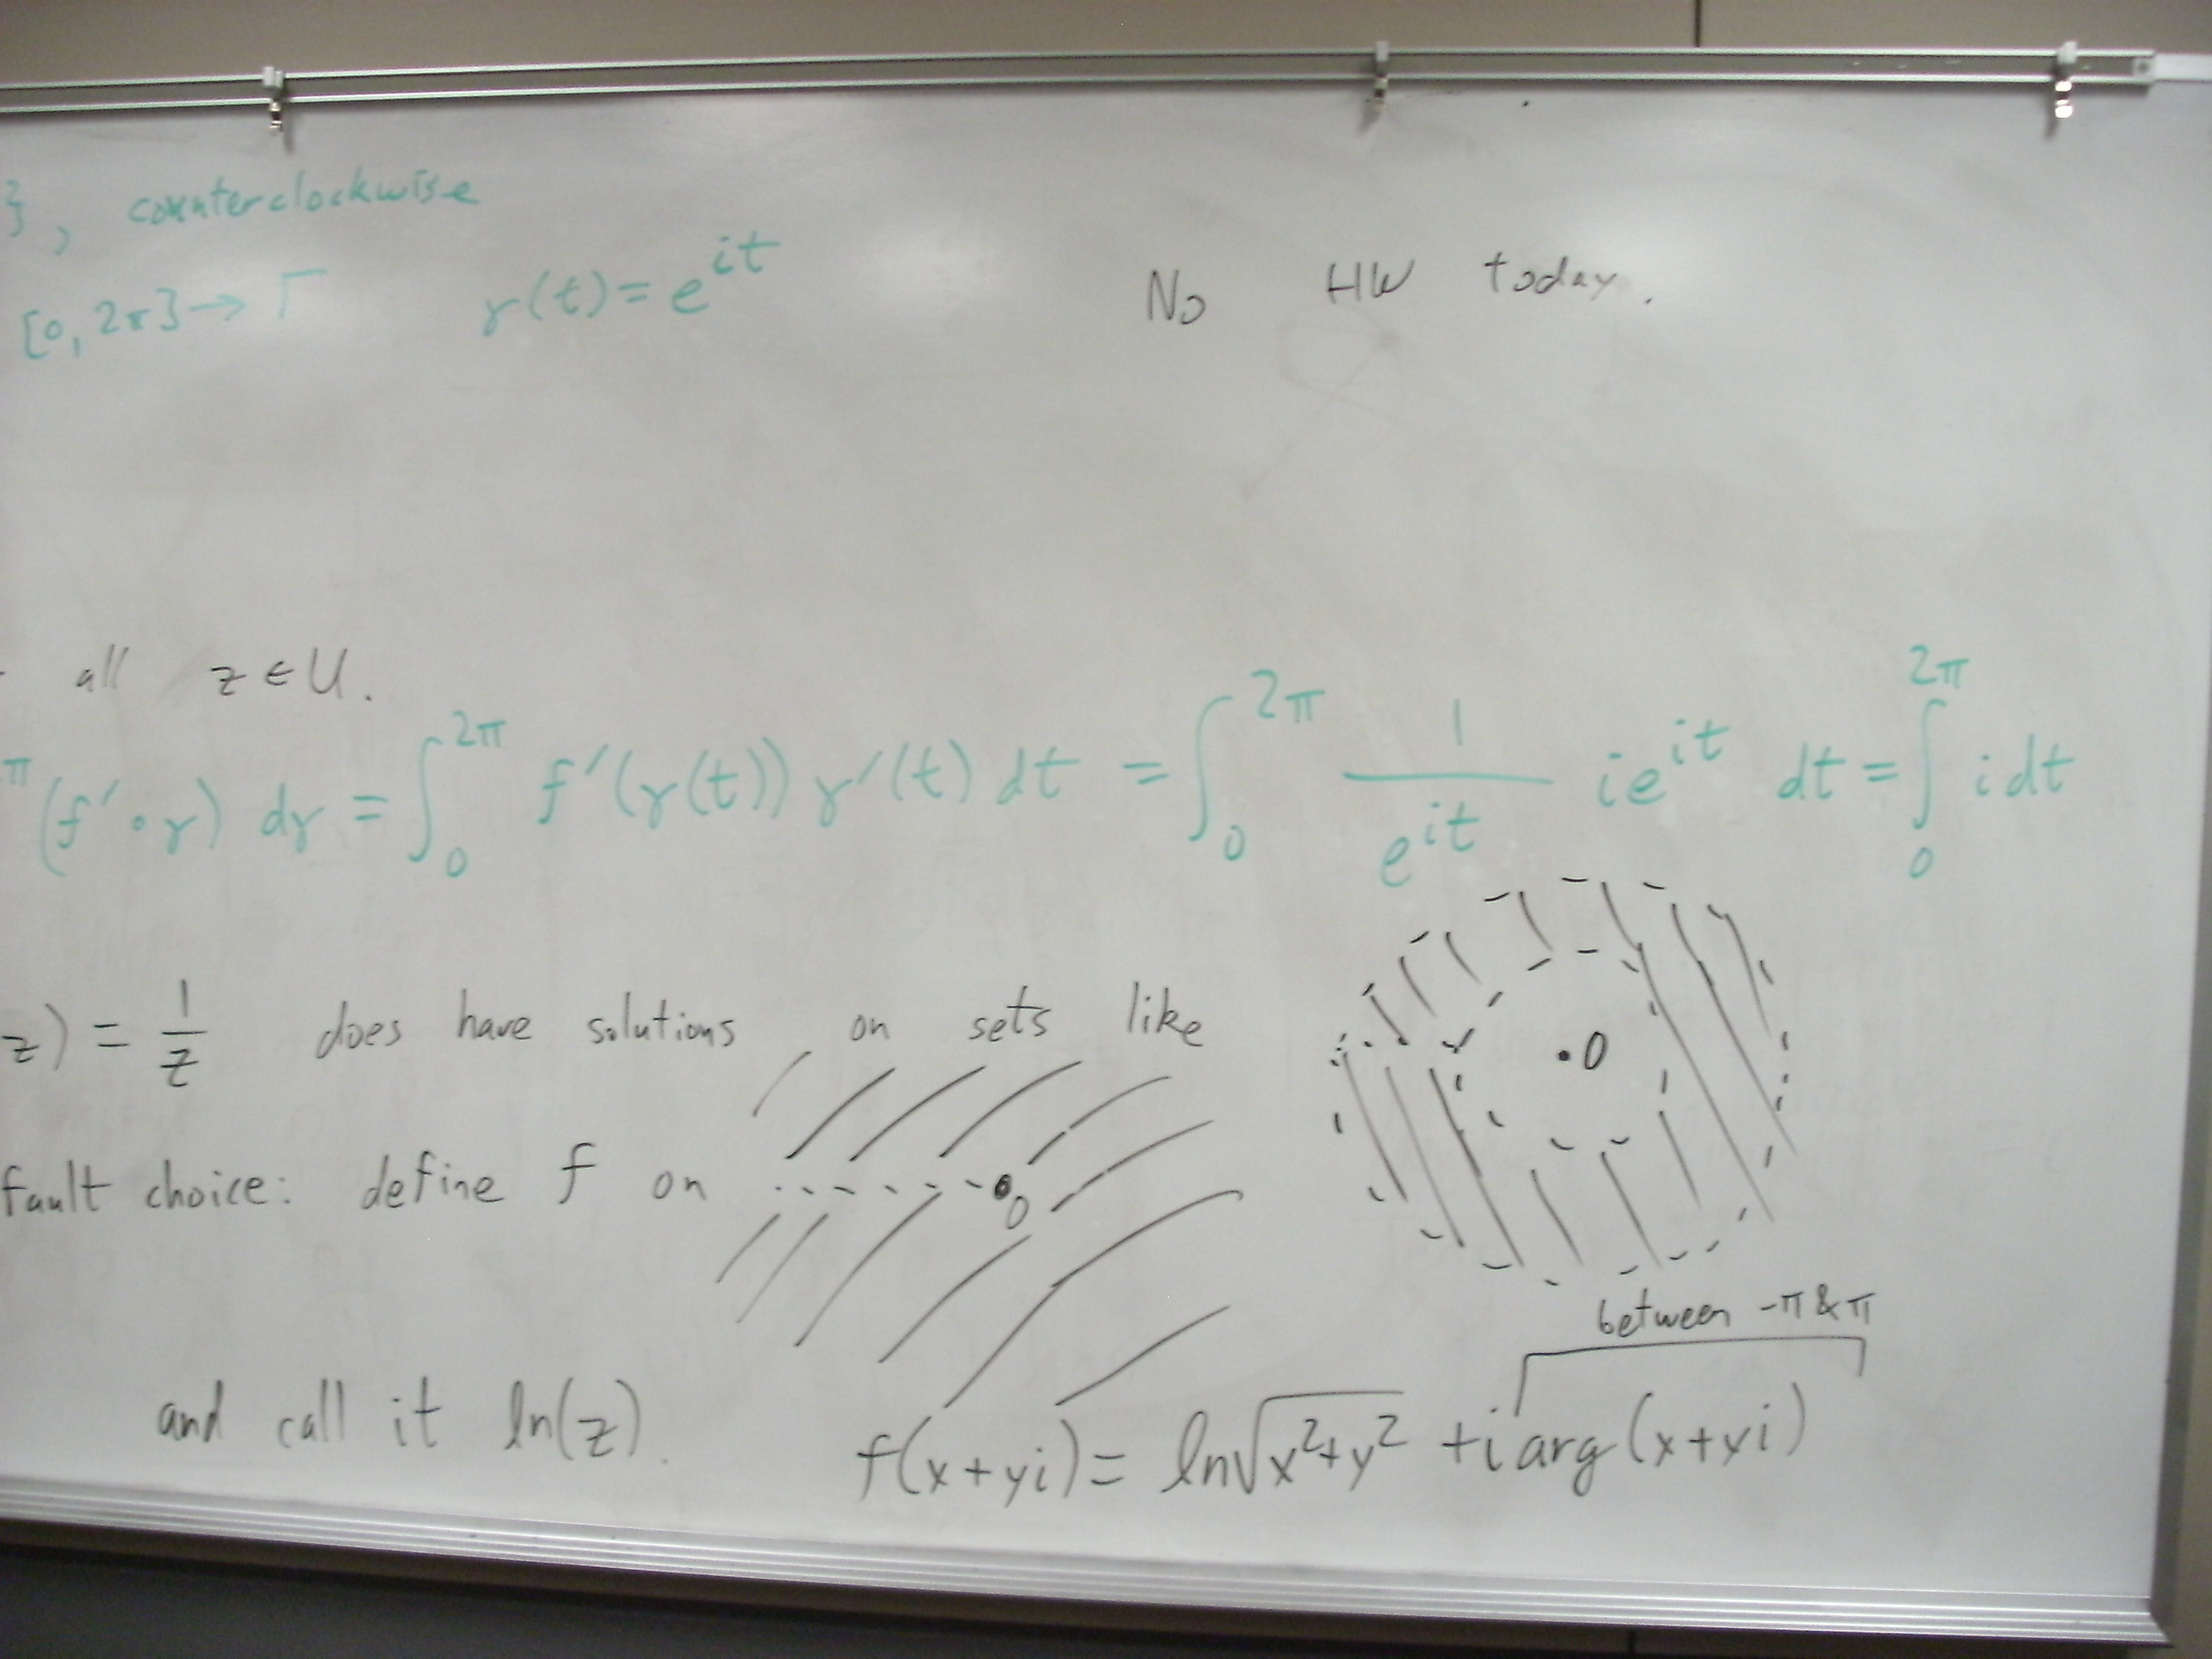 }, counterclockwise
[0, 2π] → Γ γ(t) = e^{it}
No HW today.
all z ∈ U.
π (f' ∘ γ) dγ = ∫_0^{2π} f'(γ(t)) γ'(t) dt = ∫_0^{2π} \frac{1}{e^{it}} ie^{it} dt = ∫_0^{2π} i dt
z) = \frac{1}{z} does have solutions on sets like
·0
fault choice: define f on
0
between -π & π
and call it ln(z). f(x+yi) = ln√(x²+y²) + i arg(x+yi)